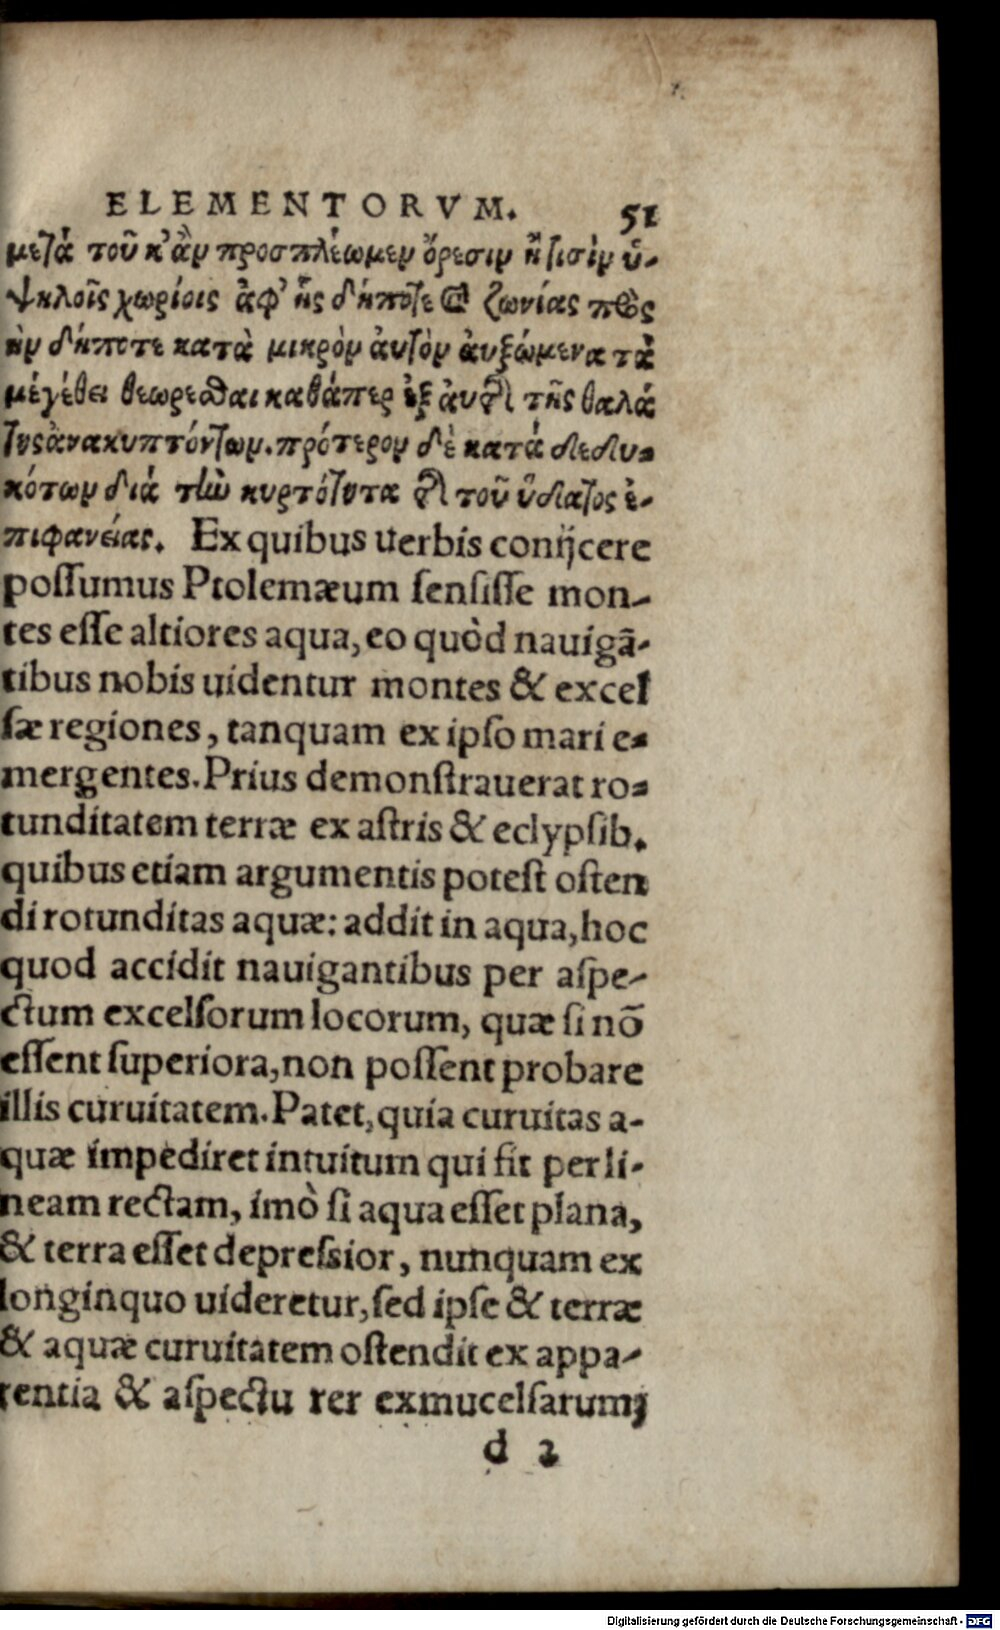 ELEMENTORVM. 51
μετά τοῦ κ' ἂν προσπλέωμεν ὄρεσιν ἤ τισὶν ὑ-
ψηλοῖς χωρίοις ἀφ' ἧς δήποτε καὶ ζωνίας πρὸς
ἣν δήποτε κατὰ μικρὸν ἀυτὸν ἀυξώμενα τὰ
μέγέθει θεωρεῖσθαι καθάπερ ἐξ ἀυτῆς τῆς θαλά
τηςἀνακυπτόντων. πρότερον δὲ κατά δεδυ-
κότων διά τὴν κυρτότητα τῆς τοῦ ὕδατος ἐ-
πιφανείας. Ex quibus uerbis conijcere
possumus Ptolemæum sensisse mon-
tes esse altiores aqua, eo quòd nauigã-
tibus nobis uidentur montes & excel
sæ regiones, tanquam ex ipso mari e-
mergentes. Prius demonstrauerat ro-
tunditatem terræ ex astris & eclypsib.
quibus etiam argumentis potest osten
di rotunditas aquæ: addit in aqua, hoc
quod accidit nauigantibus per aspe-
ctum excelsorum locorum, quæ si nõ
essent superiora, non possent probare
illis curuitatem. Patet, quia curuitas a-
quæ impediret intuitum qui fit per li-
neam rectam, imò si aqua esset plana,
& terra esset depressior, nunquam ex
longinquo uideretur, sed ipse & terræ
& aquæ curuitatem ostendit ex appa-
rentia & aspectu rer exmucelsarumj
d 2
Digitalisierung gefördert durch die Deutsche Forschungsgemeinschaft - DFG